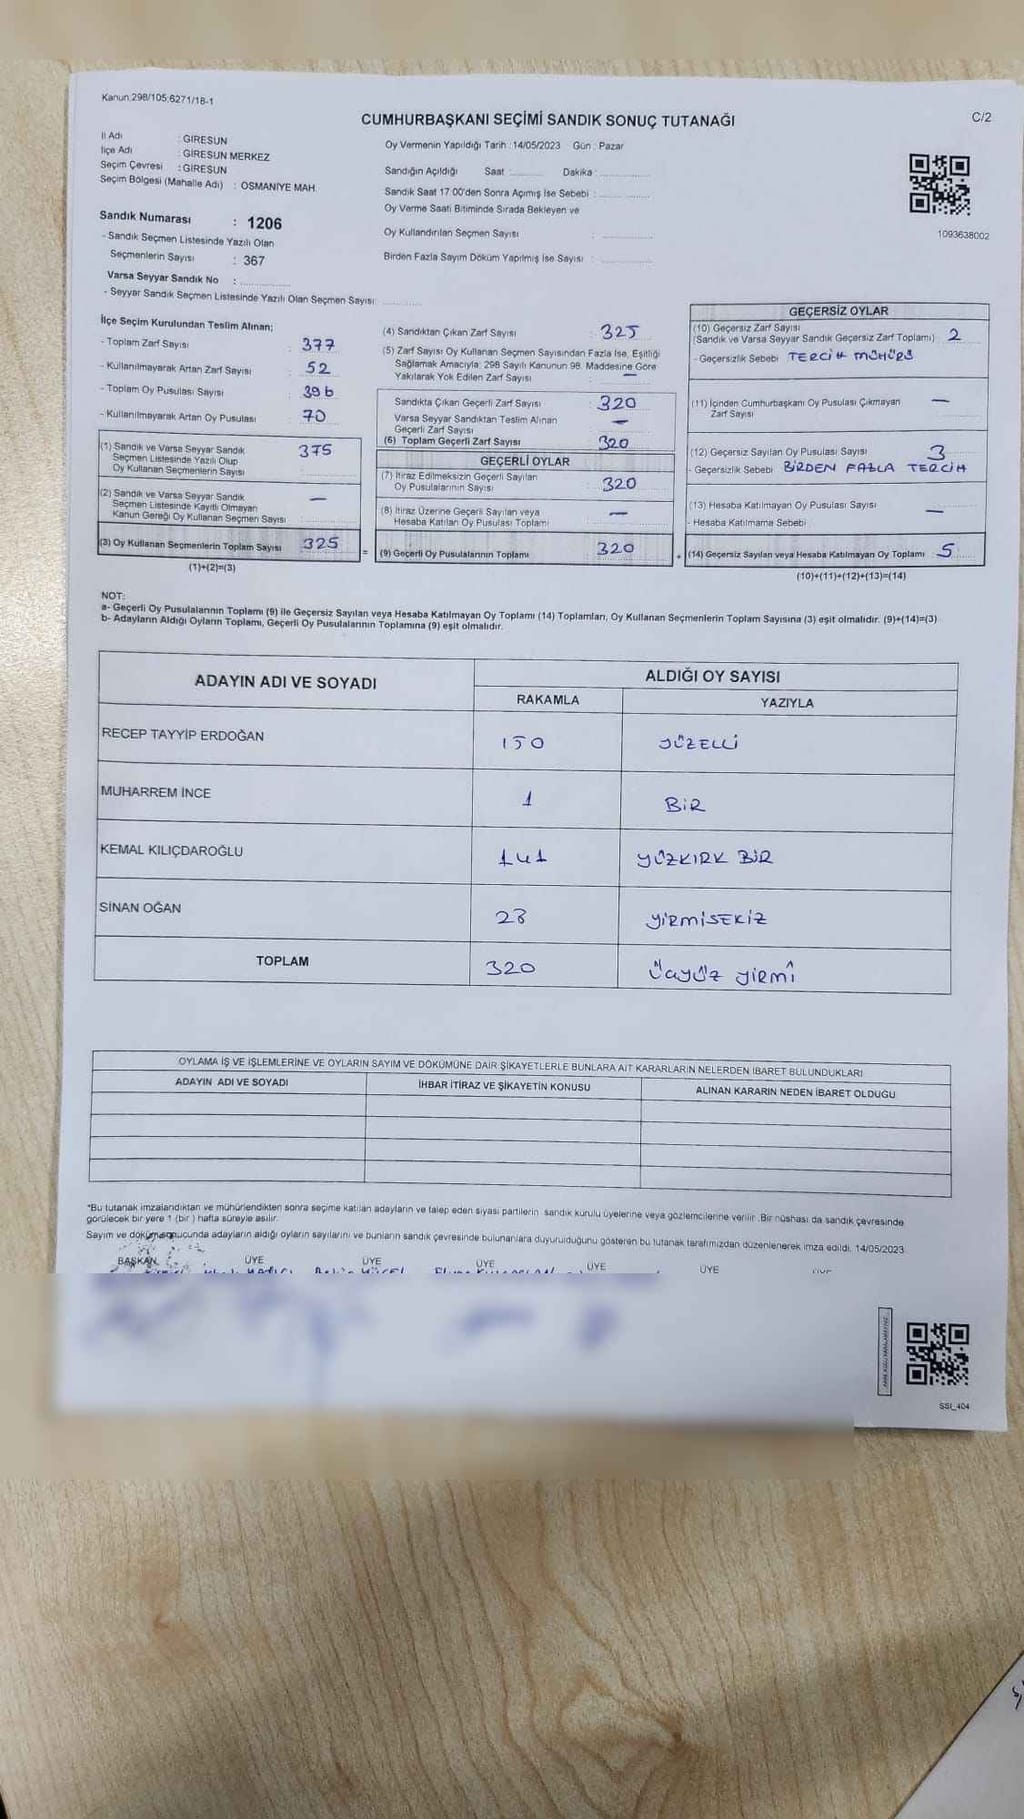 Kanun:298/105:6271/18-1
C/2
CUMHURBAŞKANI SEÇİMİ SANDIK SONUÇ TUTANAĞI
İl Adı : GİRESUN
İlçe Adı : GİRESUN MERKEZ
Seçim Çevresi : GİRESUN
Seçim Bölgesi (Mahalle Adı) : OSMANİYE MAH.
Sandık Numarası : 1206
- Sandık Seçmen Listesinde Yazılı Olan
Seçmenlerin Sayısı : 367
Varsa Seyyar Sandık No :
- Seyyar Sandık Seçmen Listesinde Yazılı Olan Seçmen Sayısı:
Oy Vermenin Yapıldığı Tarih : 14/05/2023 Gün : Pazar
Sandığın Açıldığı Saat : Dakika :
Sandık Saat 17 00'den Sonra Açımış İse Sebebi :
Oy Verme Saati Bitiminde Sırada Bekleyen ve
Oy Kullandırılan Seçmen Sayısı :
Birden Fazla Sayım Döküm Yapılmış İse Sayısı :
1093638002
İlçe Seçim Kurulundan Teslim Alınan;
- Toplam Zarf Sayısı : 377
- Kullanılmayarak Artan Zarf Sayısı : 52
- Toplam Oy Pusulası Sayısı : 396
- Kullanılmayarak Artan Oy Pusulası : 70
(1) Sandık ve Varsa Seyyar Sandık
Seçmen Listesinde Yazılı Olup
Oy Kullanan Seçmenlerin Sayısı : 375
(2) Sandık ve Varsa Seyyar Sandık
Seçmen Listesinde Kayıtlı Olmayan
Kanun Gereği Oy Kullanan Seçmen Sayısı : —
(3) Oy Kullanan Seçmenlerin Toplam Sayısı : 325
(1)+(2)=(3)
(4) Sandıktan Çıkan Zarf Sayısı : 325
(5) Zarf Sayısı Oy Kullanan Seçmen Sayısından Fazla İse, Eşitliği
Sağlamak Amacıyla, 298 Sayılı Kanunun 98. Maddesine Göre
Yakılarak Yok Edilen Zarf Sayısı : —
Sandıkta Çıkan Geçerli Zarf Sayısı : 320
Varsa Seyyar Sandıktan Teslim Alınan
Geçerli Zarf Sayısı : —
(6) Toplam Geçerli Zarf Sayısı : 320
GEÇERLİ OYLAR
(7) İtiraz Edilmeksizin Geçerli Sayılan
Oy Pusulalarının Sayısı : 320
(8) İtiraz Üzerine Geçerli Sayılan veya
Hesaba Katılan Oy Pusulası Toplamı : —
= (9) Geçerli Oy Pusulalarının Toplamı : 320
GEÇERSİZ OYLAR
(10) Geçersiz Zarf Sayısı
(Sandık ve Varsa Seyyar Sandık Geçersiz Zarf Toplamı) : 2
- Geçersizlik Sebebi : TERCİH MÜHÜRÜ
(11) İçinden Cumhurbaşkanı Oy Pusulası Çıkmayan
Zarf Sayısı : —
(12) Geçersiz Sayılan Oy Pusulası Sayısı : 3
- Geçersizlik Sebebi : BİRDEN FAZLA TERCİH
(13) Hesaba Katılmayan Oy Pusulası Sayısı : —
- Hesaba Katılmama Sebebi :
+ (14) Geçersiz Sayılan veya Hesaba Katılmayan Oy Toplamı : 5
(10)+(11)+(12)+(13)=(14)
NOT:
a- Geçerli Oy Pusulalarının Toplamı (9) ile Geçersiz Sayılan veya Hesaba Katılmayan Oy Toplamı (14) Toplamları, Oy Kullanan Seçmenlerin Toplam Sayısına (3) eşit olmalıdır. (9)+(14)=(3)
b- Adayların Aldığı Oyların Toplamı, Geçerli Oy Pusulalarının Toplamına (9) eşit olmalıdır.
ADAYIN ADI VE SOYADI
ALDIĞI OY SAYISI
RAKAMLA YAZIYLA
RECEP TAYYİP ERDOĞAN 150 YÜZELLİ
MUHARREM İNCE 1 BİR
KEMAL KILIÇDAROĞLU 141 YÜZKIRK BİR
SİNAN OĞAN 28 YİRMİSEKİZ
TOPLAM 320 ÜÇYÜZ YİRMİ
OYLAMA İŞ VE İŞLEMLERİNE VE OYLARIN SAYIM VE DÖKÜMÜNE DAİR ŞİKAYETLERLE BUNLARA AİT KARARLARIN NELERDEN İBARET BULUNDUKLARI
ADAYIN ADI VE SOYADI İHBAR İTİRAZ VE ŞİKAYETİN KONUSU ALINAN KARARIN NEDEN İBARET OLDUĞU
*Bu tutanak imzalandıktan ve mühürlendikten sonra seçime katılan adayların ve talep eden siyasi partilerin sandık kurulu üyelerine veya gözlemcilerine verilir. Bir nüshası da sandık çevresinde
görülecek bir yere 1 (bir ) hafta süreyle asılır.
Sayım ve döküm sonucunda adayların aldığı oyların sayılarını ve bunların sandık çevresinde bulunanlara duyurulduğunu gösteren bu tutanak tarafımızdan düzenlenerek imza edildi. 14/05/2023
BAŞKAN ÜYE ÜYE ÜYE ÜYE ÜYE ÜYE
SSI_404